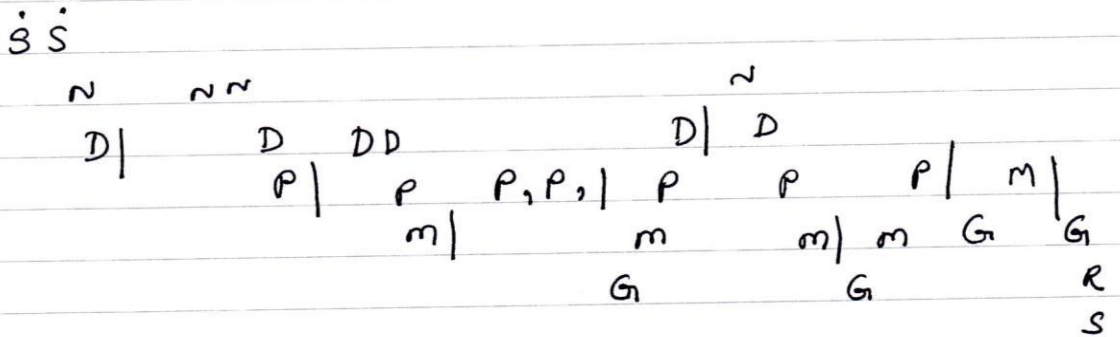 Ṡ Ṡ
N N N N
D| D D D D| D
P| P P, P, | P P P| M|
m| m m| m G G
G G R
S